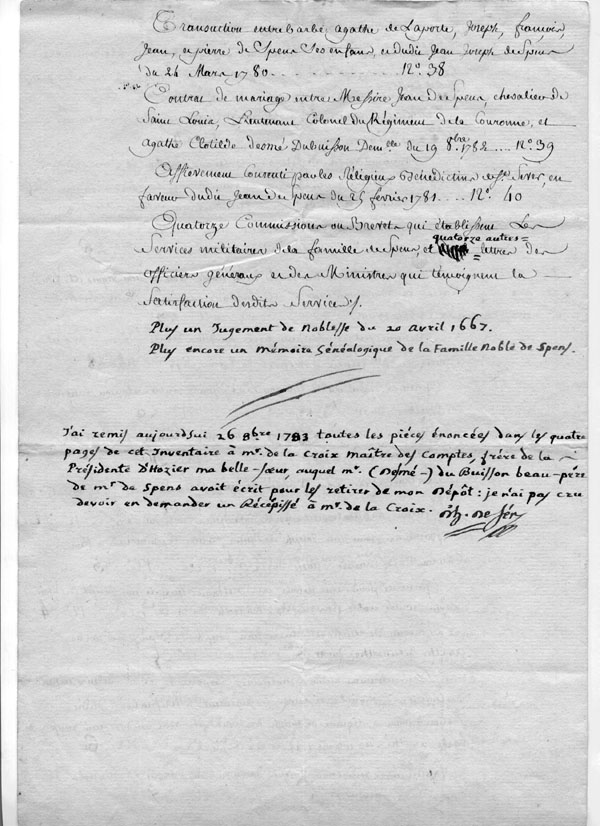 Transaction entre Barbe agathe de Laporte, Joseph, françois,
Jean, et pierre de Spens ses enfans, et dudit Jean Joseph de Spens
du 24 Mars 1780 . . . . . . . . . . N.° 38
Contrat de mariage entre Messire Jean de Spens, chevalier de
Saint Louis, Lieutenant Colonel du Régiment de la Couronne, et
agathe Clotilde desmé Dubuisson Dem.lle du 19 8.bre 1782 .... N.° 39
Affievement Consenti par les Réligieux Bénédictins de St Sever, en
faveur dudit Jean de Spens du 25 février 1781 .... N.° 40
Quatorze Commissions ou Brevets qui établissent les
Services militaires de la famille de Spens, et quatorze autres lettres des
officiers généraux et des Ministres qui témoignent la
Satisfaction desdits Services.
Plus un Jugement de Noblesse du 20 avril 1667.
Plus encore un Mémoire Généalogique de la Famille Noble de Spens.
J'ai remis aujourdhui 26 8bre 1783 toutes les piéces énoncées dans les quatre
pages de cet Inventaire à mr. de la Croix maître des Comptes, frére de la
Présidente d'Hozier ma belle-sœur, auquel mr. (Desmé-) du Buisson beau-pére
de mr de Spens avoit écrit pour les retirer de mon Dépôt : je n'ai pas cru
devoir en demander un Récépissé à mr. de la Croix. d'hz. de Sér